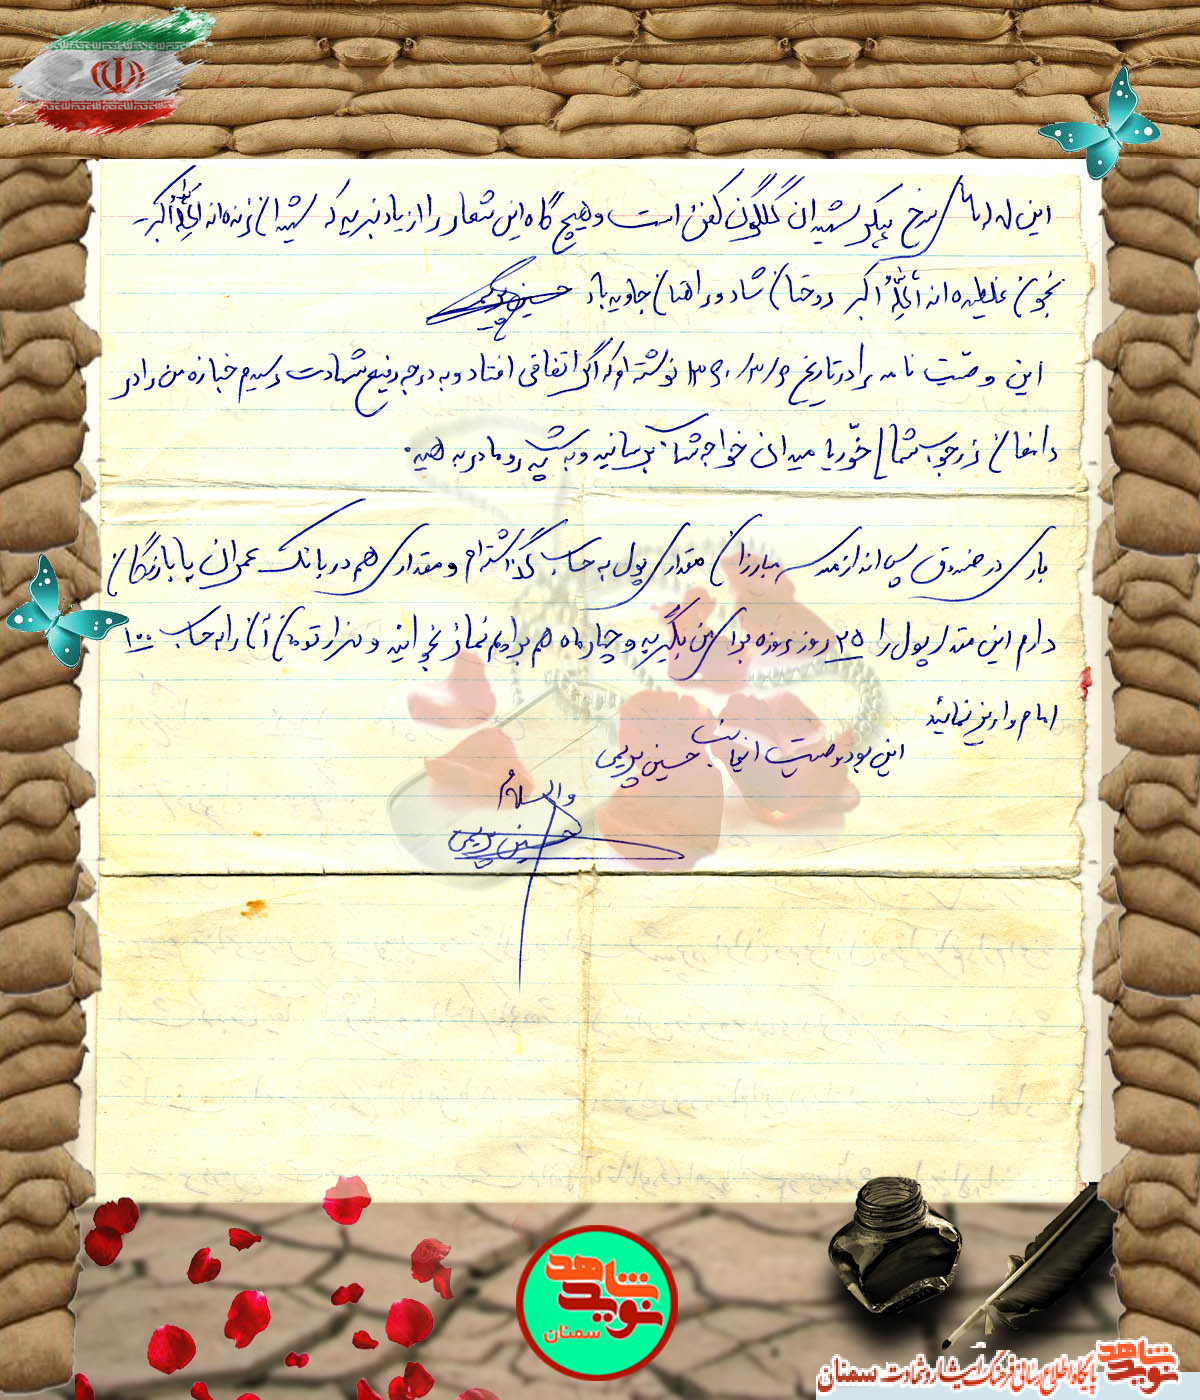 این لاله‌های سرخ پیکر شهیدان گلگون کفن است و هیچ گاه این شعار را از یاد نبرید که شهیدان زنده‌اند اللهُ اکبر -
بخون غلطیده‌اند اللهُ اکبر روحتان شاد و راهتان جاوید باد حسین
این وصیّت نامه را در تاریخ نوشته‌ام که اگر اتفاقی افتاد و به درجه رفیع شهادت رسیدم جنازه من را در
دامغان خوریا میدانی خواجه شما برسانید و به پدر و مادرم دهید.
باری در صندوق پس انداز مدرسه مبارزان مقداری پول به حساب گذاشته‌ام و مقداری هم در بانک عمران یا بازرگان
دارم این مقدار پول را ۲۵ روز روزه برای من بگیرید و چهار ماه هم برایم نماز بخوانید و هزار تومان آنرا به حساب ۱۰۰
امام واریز نمائید
این بود وصیت اینجانب حسین
والسلام
حسین
شاهد
نوید
سمنان
پایگاه اطلاع رسانی فرهنگ ایثار و شهادت سمنان
نوید شاهد